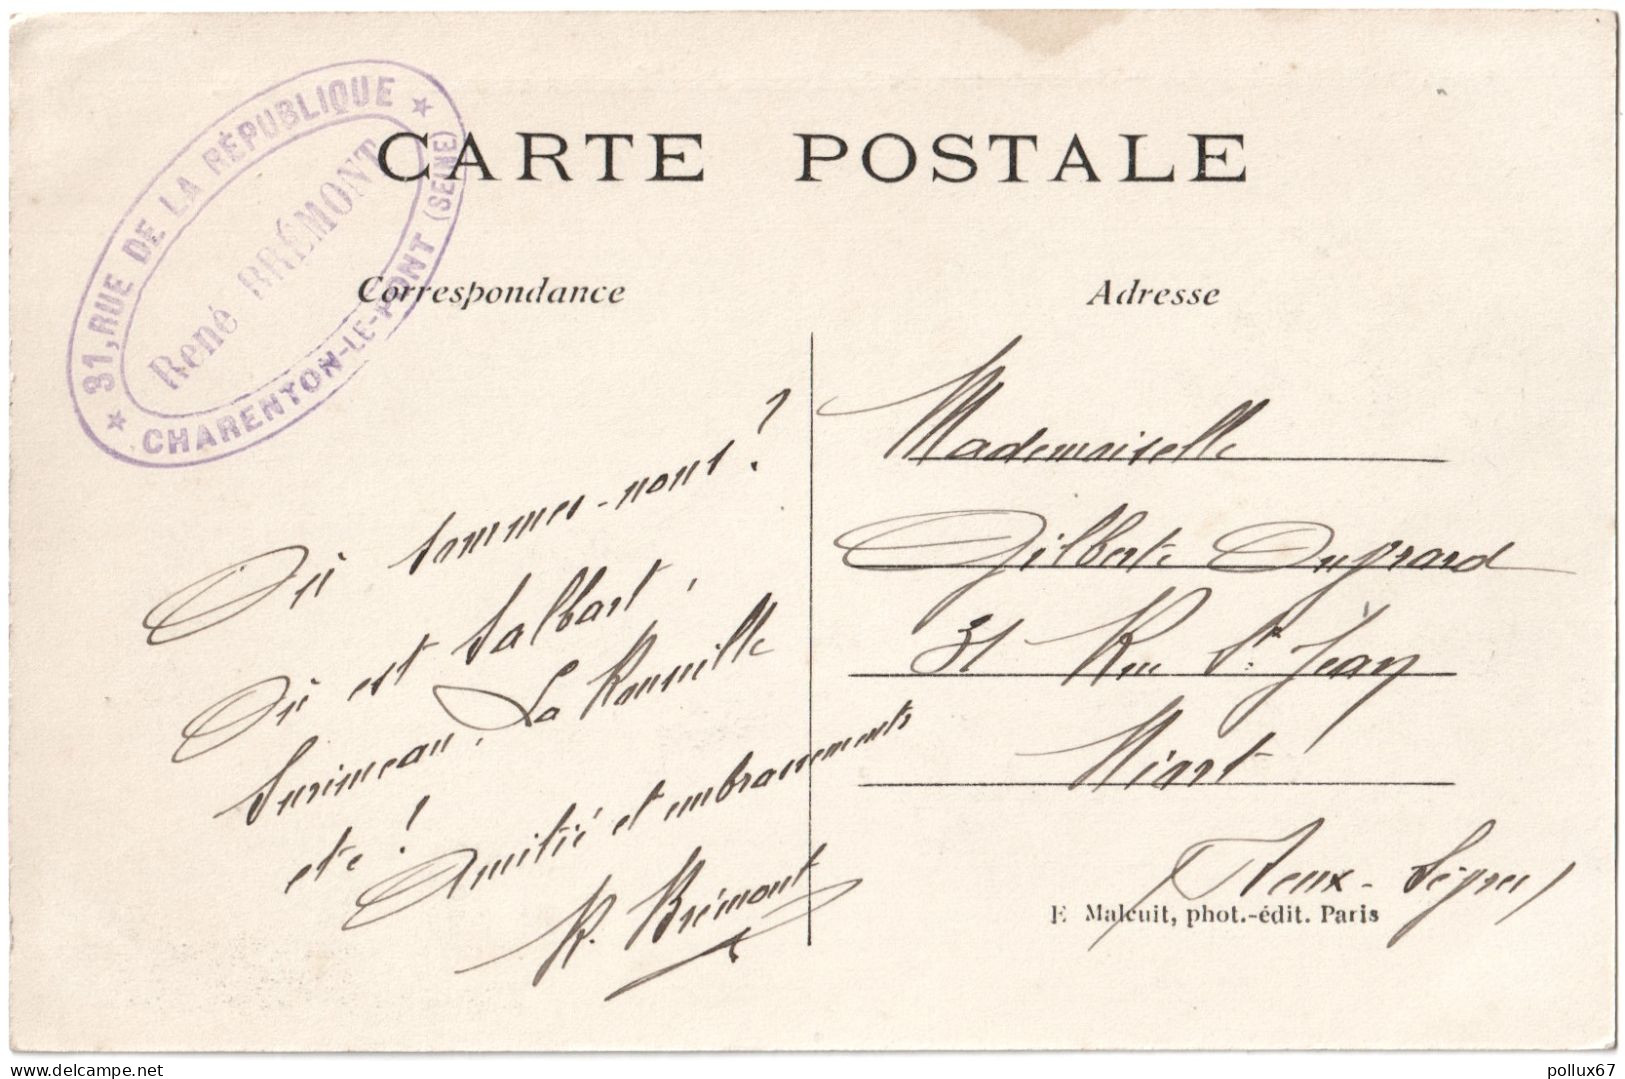 31, RUE DE LA RÉPUBLIQUE
René BRÉMONT
CHARENTON-LE-PONT (SEINE)
CARTE POSTALE
Correspondance
Adresse
Où sommes-nous ?
Où est Salbart,
Surimeau, La Roussille
etc !
Amitié et embrassements
R. Brémont
Mademoiselle
Gilberte Duprard
31 Rue St Jean
Niort
Deux-Sèvres
E Malcuit, phot.-édit. Paris
delcampe.net
pollux67